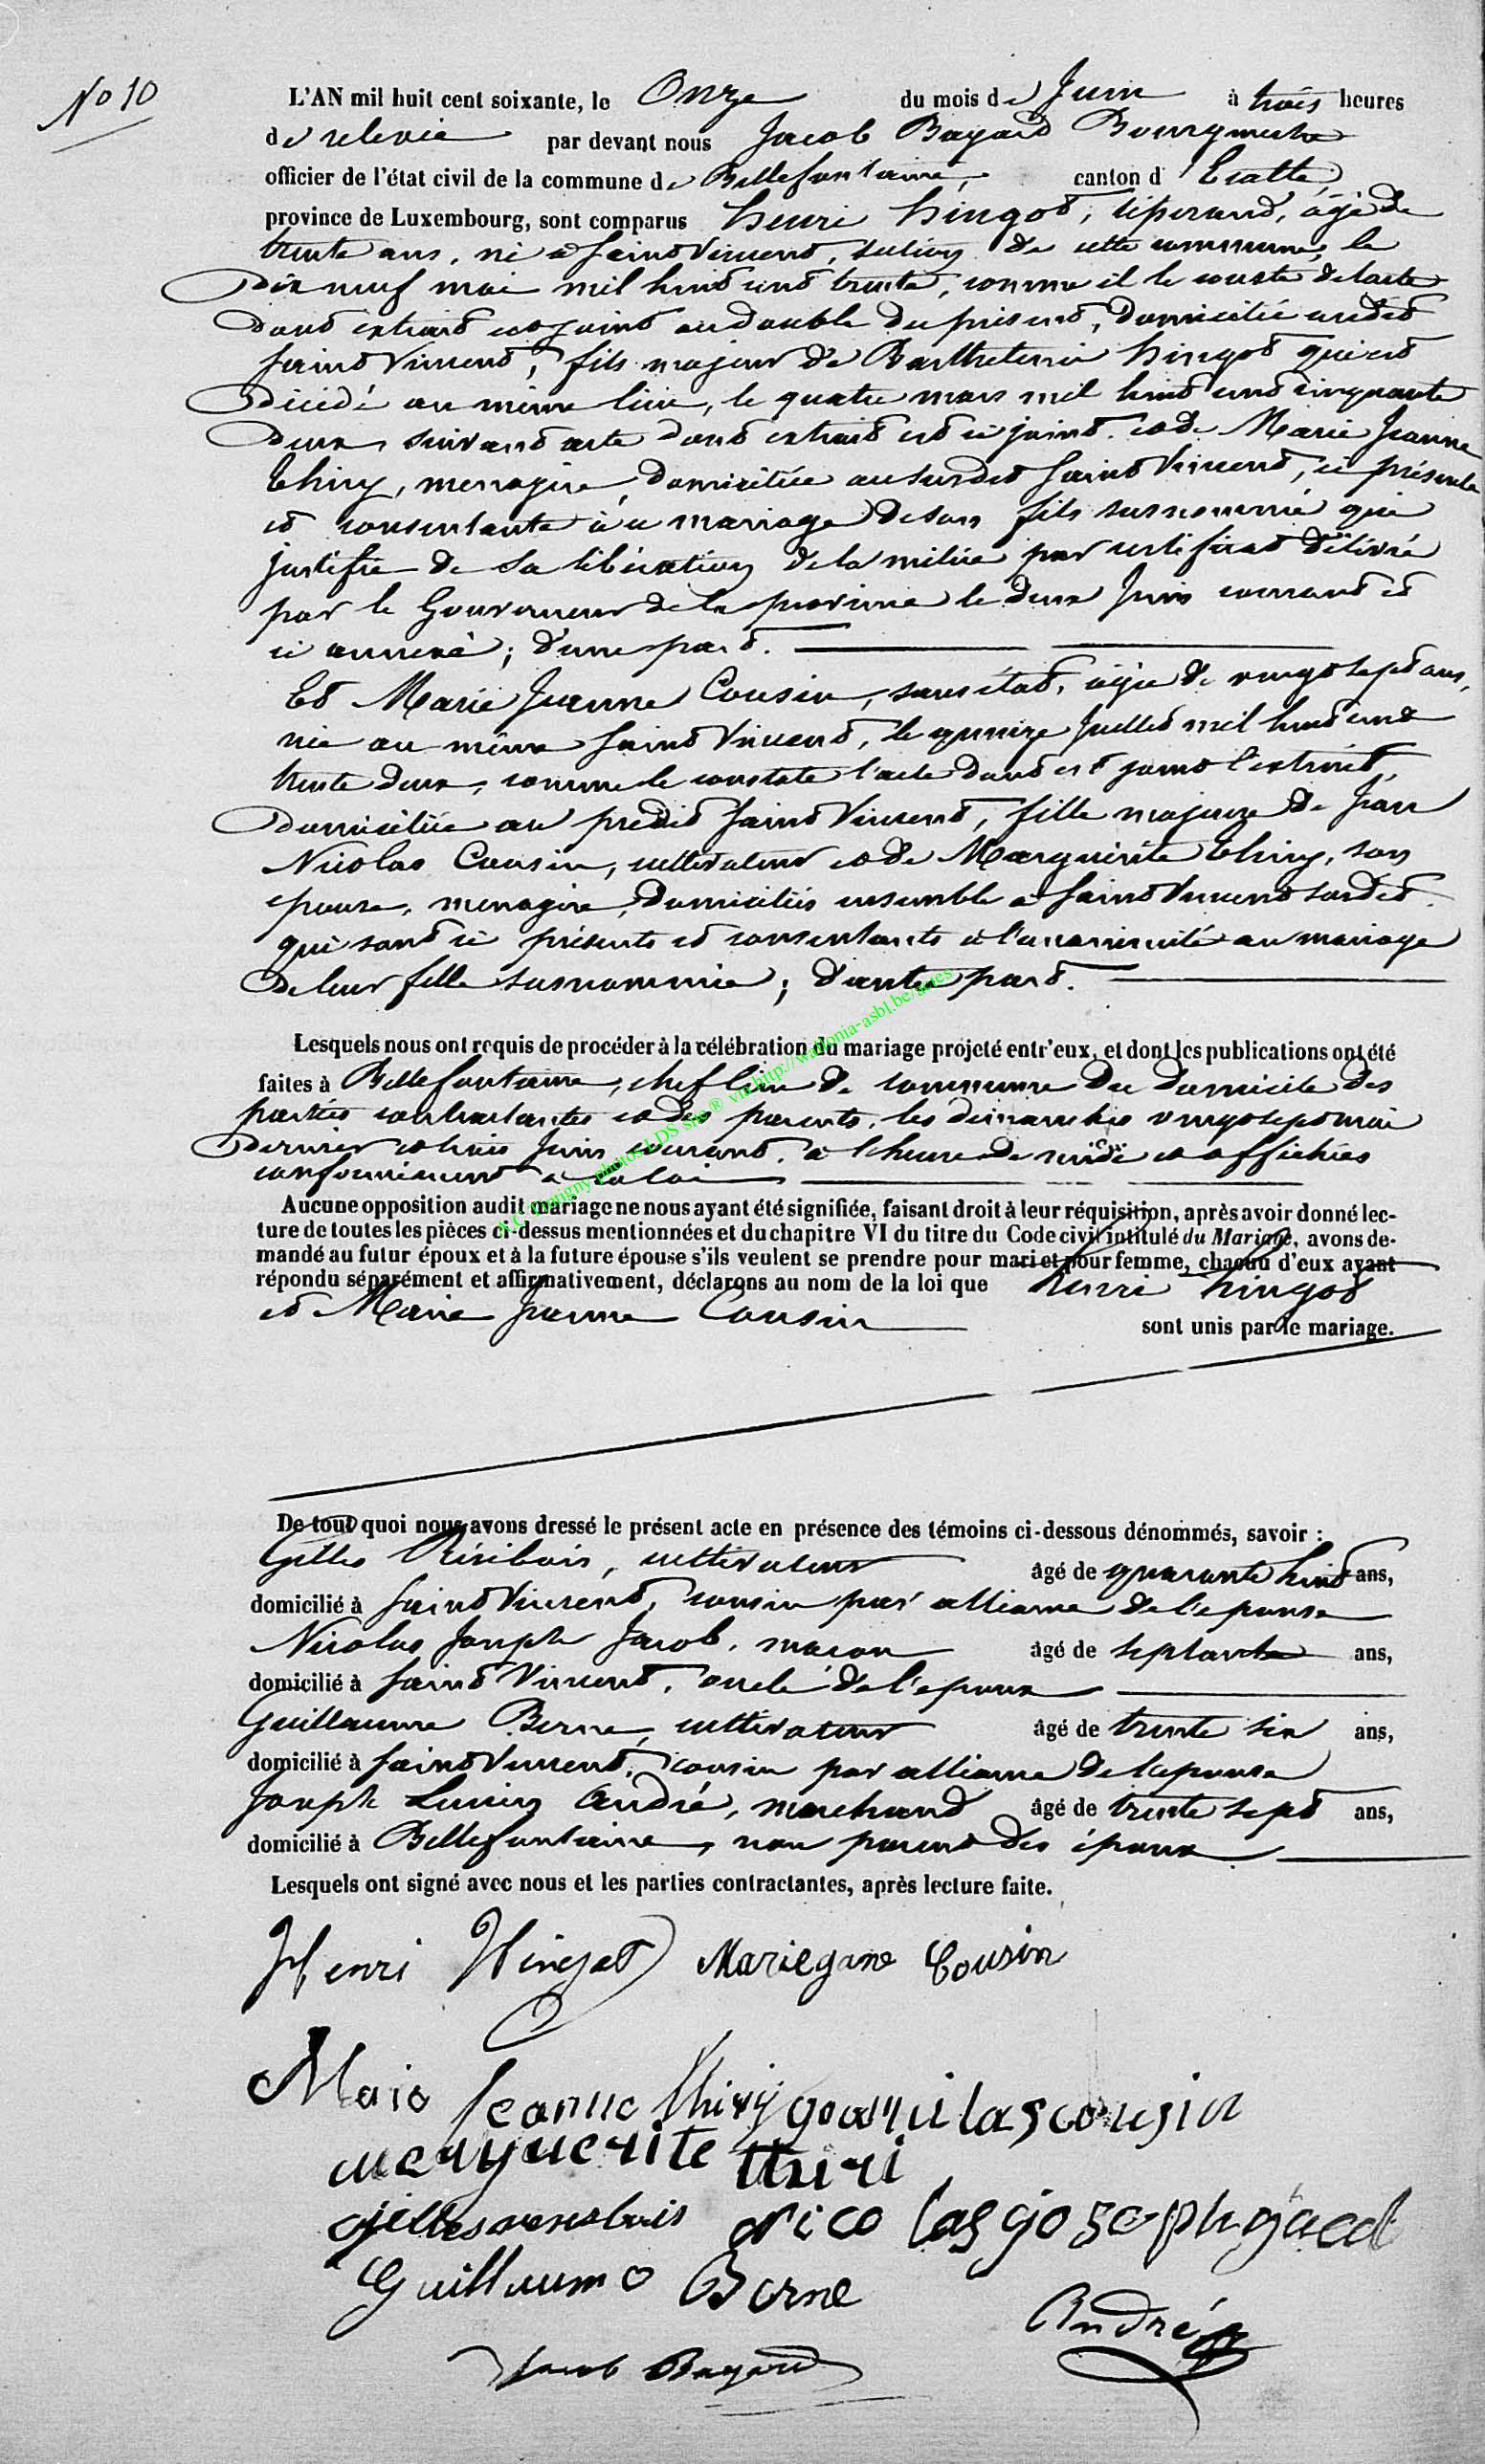 No 10
L'AN mil huit cent soixante, le Onze du mois de Juin à trois heures
de relevée par devant nous Jacob Bayard Bourgmestre
officier de l'état civil de la commune de Bellefontaine, canton d'Etalle,
province de Luxembourg, sont comparus henri hingot, âgé de
trente ans, né à Saint Vincent, section de cette commune, le
dix neuf mai mil huit cent trente, comme il le conste de l'acte
dont extrait est joint au double du présent, domicilié audit
Saint Vincent, fils majeur de Barthelemi hingot qui est
décédé au même lieu, le quatre mars mil huit cent cinquante
deux, suivant acte dont extrait est ci joint. et de Marie Jeanne
thiry, menagère, domiciliée au susdit Saint Vincent, ci présente
et consentante à ce mariage de son fils susnommé qui
justifie de sa libération de la milice par certificat délivré
par le Gouverneur de la province le deux Juin courant et
ci annexé; d'une part.
Et Marie Jeanne Cousin, sans état, âgée de vingt sept ans,
née au même Saint Vincent, le quinze Juillet mil huit cent
trente deux, comme le constate l'acte dont est joint l'extrait,
domiciliée au predit Saint Vincent, fille majeure de Jean
Nicolas Cousin, cultivateur et de Marguerite thiry, son
epouse, menagère, domiciliés ensemble à Saint Vincent susdit.
qui sont ci présents et consentants à l'unanimité au mariage
de leur fille susnommée; d'autre part.
Lesquels nous ont requis de procéder à la célébration du mariage projeté entr'eux, et dont les publications ont été
faites à Bellefontaine, chef lieu de commune du domicile des
parties contractantes et des parents, les dimanches vingt sept mai
dernier et trois Juin courant, à l'heure de midi et affichées
conformément à la loi
Aucune opposition audit mariage ne nous ayant été signifiée, faisant droit à leur réquisition, après avoir donné lec-
ture de toutes les pièces ci-dessus mentionnées et du chapitre VI du titre du Code civil intitulé du Mariage, avons de-
mandé au futur époux et à la future épouse s'ils veulent se prendre pour mari et pour femme, chacun d'eux ayant
répondu séparément et affirmativement, déclarons au nom de la loi que henri hingot
et Marie Jeanne Cousin
sont unis par le mariage.
De tout quoi nous avons dressé le présent acte en présence des témoins ci-dessous dénommés, savoir :
Gilles cultivateur âgé de quarante huit ans,
domicilié à Saint Vincent, cousin par alliance de l'epouse
Nicolas Joseph Jacob, macon âgé de septante ans,
domicilié à Saint Vincent, oncle de l'epoux
Guillaume Berne, cultivateur âgé de trente six ans,
domicilié à Saint Vincent, cousin par alliance de l'epouse
Joseph Lucien André, marchand âgé de trente sept ans,
domicilié à Bellefontaine, non parent des époux
Lesquels ont signé avec nous et les parties contractantes, après lecture faite.
Henri Hingot Mariegane Cousin
Marie Jeanne thiry goannilascousin
merguerite thiri
nicolasgosephgacob
Guillaume Berne
André
Jacob Bayard